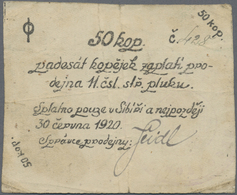 50 kop.
50 kop.
č. 428
padesát kopějek zaplatí pro-
dejna 11. čsl. stř. pluku.
Splatno pouze v Sibiři a nejpozději
30 června 1920.
Správce prodejny: Seidl
50 kop.